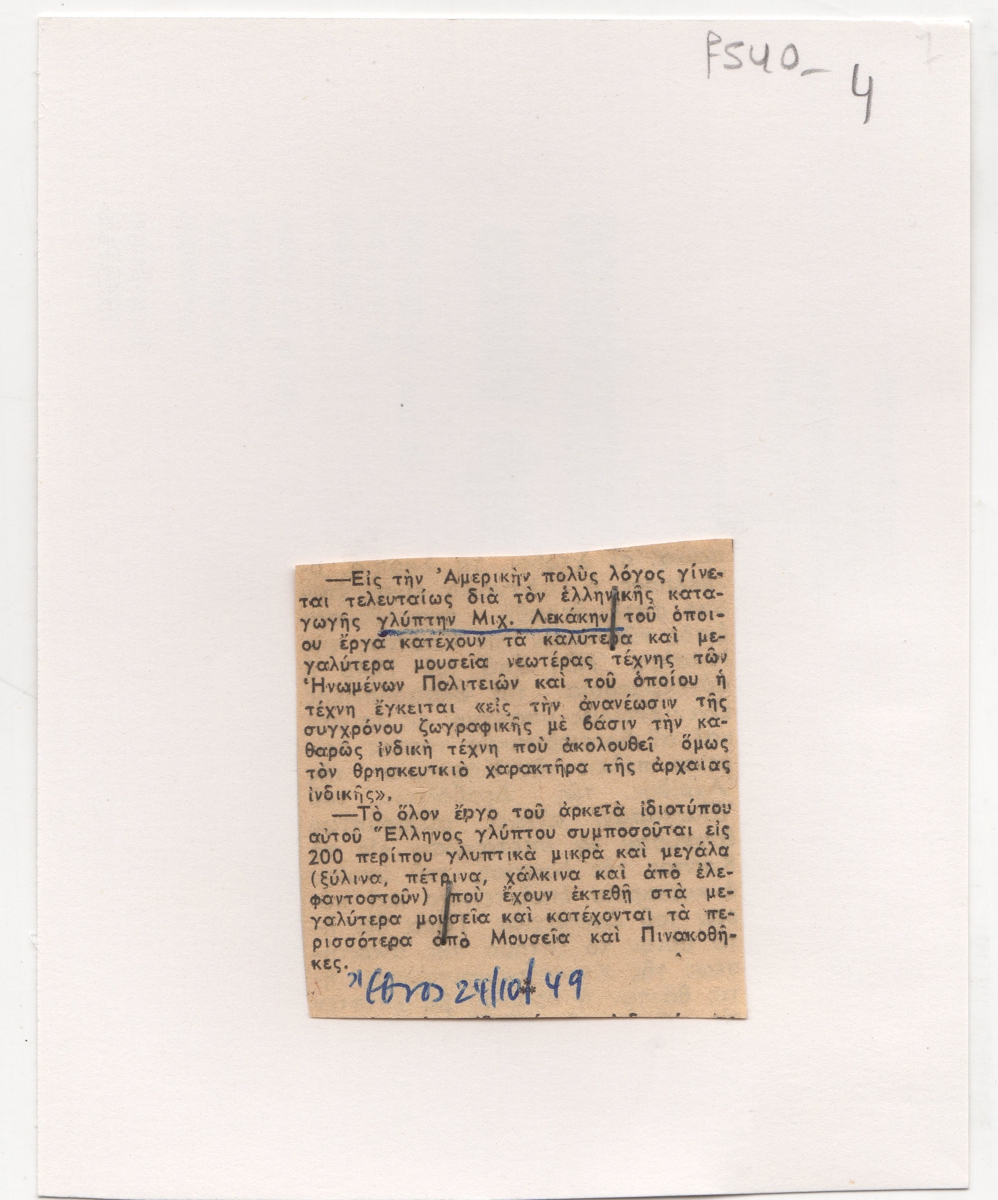 F540_4
—Εἰς τὴν Ἀμερικὴν πολὺς λόγος γίνε-
ται τελευταίως διὰ τὸν ἑλληνικῆς κατα-
γωγῆς γλύπτην Μιχ. Λεκάκην τοῦ ὁποί-
ου ἔργα κατέχουν τὰ καλύτερα καὶ με-
γαλύτερα μουσεῖα νεωτέρας τέχνης τῶν
Ἡνωμένων Πολιτειῶν καὶ τοῦ ὁποίου ἡ
τέχνη ἔγκειται «εἰς τὴν ἀνανέωσιν τῆς
συγχρόνου ζωγραφικῆς μὲ βάσιν τὴν κα-
θαρῶς ἰνδικὴ τέχνη ποὺ ἀκολουθεῖ ὅμως
τὸν θρησκευτκιὸ χαρακτῆρα τῆς ἀρχαιας
ἰνδικῆς».
—Τὸ ὅλον ἔργο τοῦ ἀρκετὰ ἰδιοτύπου
αὐτοῦ Ἕλληνος γλύπτου συμποσοῦται εἰς
200 περίπου γλυπτικὰ μικρὰ καὶ μεγάλα
(ξύλινα, πέτρινα, χάλκινα καὶ ἀπὸ ἐλε-
φαντοστοῦν) ποὺ ἔχουν ἐκτεθῆ στὰ με-
γαλύτερα μουσεῖα καὶ κατέχονται τὰ πε-
ρισσότερα ἀπὸ Μουσεῖα καὶ Πινακοθῆ-
κες.
Ἔθνος 24/10/49